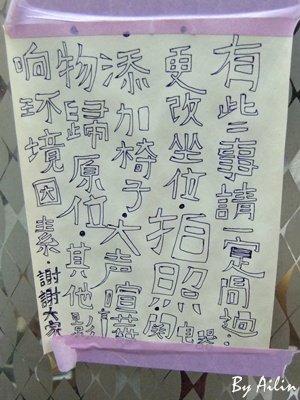 有些事請一定問過:
更改坐位·拍照·開電器
添加椅子·大声喧嘩
物歸原位·其他影
响环境因素·謝謝大家
By Ailin